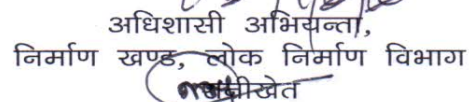 अधिशासी अभियन्ता,
निर्माण खण्ड, लोक निर्माण विभाग